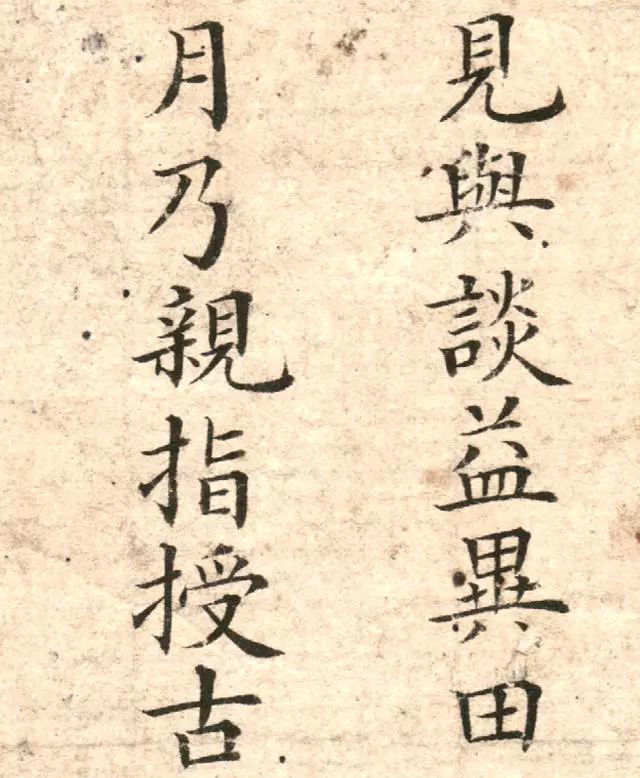 見與談益異田
月乃親指授古